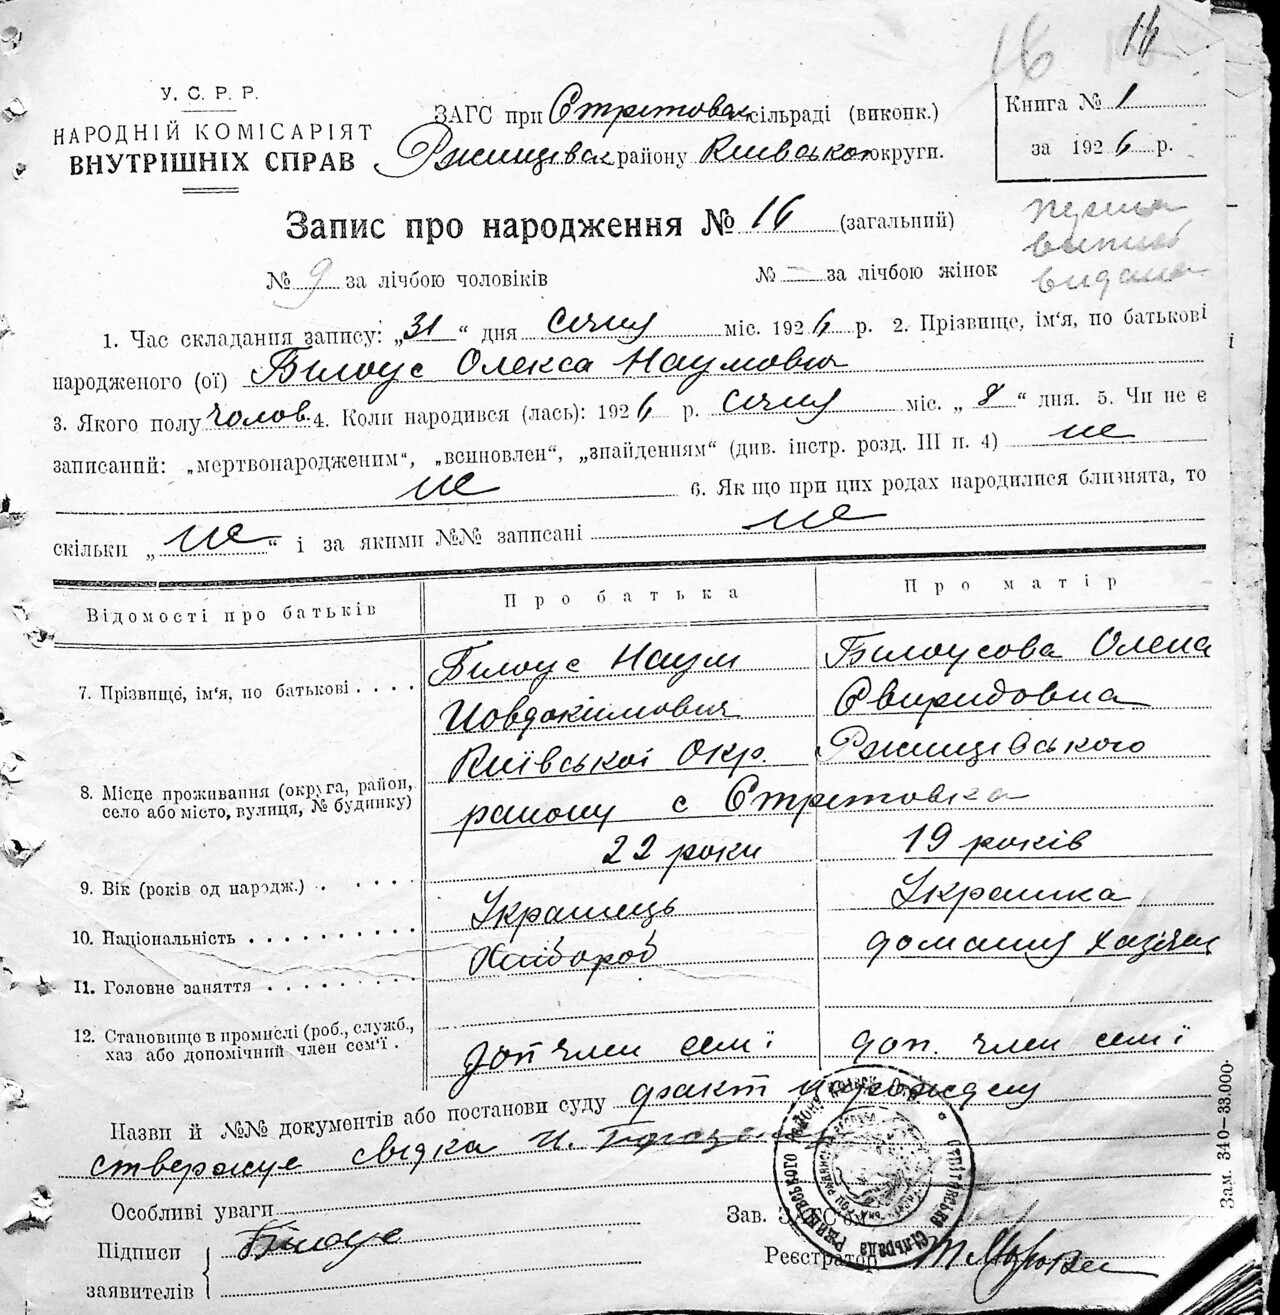 16
16
У. С. Р. Р.
НАРОДНІЙ КОМІСАРІЯТ
ВНУТРІШНІХ СПРАВ
ЗАГС при Стрітовск. сільраді (викопк.)
Ржищівськ району Київської округи.
Книга № 1
за 1926 р.
Запис про народження № 16 (загальний)
перша
випись
видана
№ 9 за лічбою чоловіків № — за лічбою жінок
1. Час складання запису: „31“ дня січня міс. 1926 р. 2. Прізвище, ім'я, по батькові
народженого (ої) Білоус Олекса Наумович
3. Якого полу чолов. 4. Коли народився (лась): 1926 р. січня міс. „8“ дня. 5. Чи не є
записаний: „мертвонародженим“, „всиновлен“, „знайденням“ (див. інстр. розд. III п. 4) не
не 6. Як що при цих родах народилися близнята, то
скільки „не“ і за якими №№ записані не
Відомості про батьків Про батька Про матір
7. Прізвище, ім'я, по батькові . . . . Білоус Наум Білоусова Олена
Йовдокимович Свиридовна
8. Місце проживання (округа, район, село або місто, вулиця, № будинку) Київської Окр. Ржищівського
району с Стрітовка
9. Вік (років од народж.) . . . . . 22 роки 19 років
10. Національність . . . . . . . . . . Українець Українка
11. Головне заняття . . . . . . . . . Хлібороб домашня хазяйка
12. Становище в промислі (роб., служб.,
хаз або допомічний член сем'ї . доп член сем'ї доп. член сем'ї
Назви й №№ документів або постанови суду факт народження
стверджує свідка И.
Особливі уваги
Підписи Білоус
заявителів
Зав. ЗАГС'ом
Реєстратор
Зам. 340—33.000.